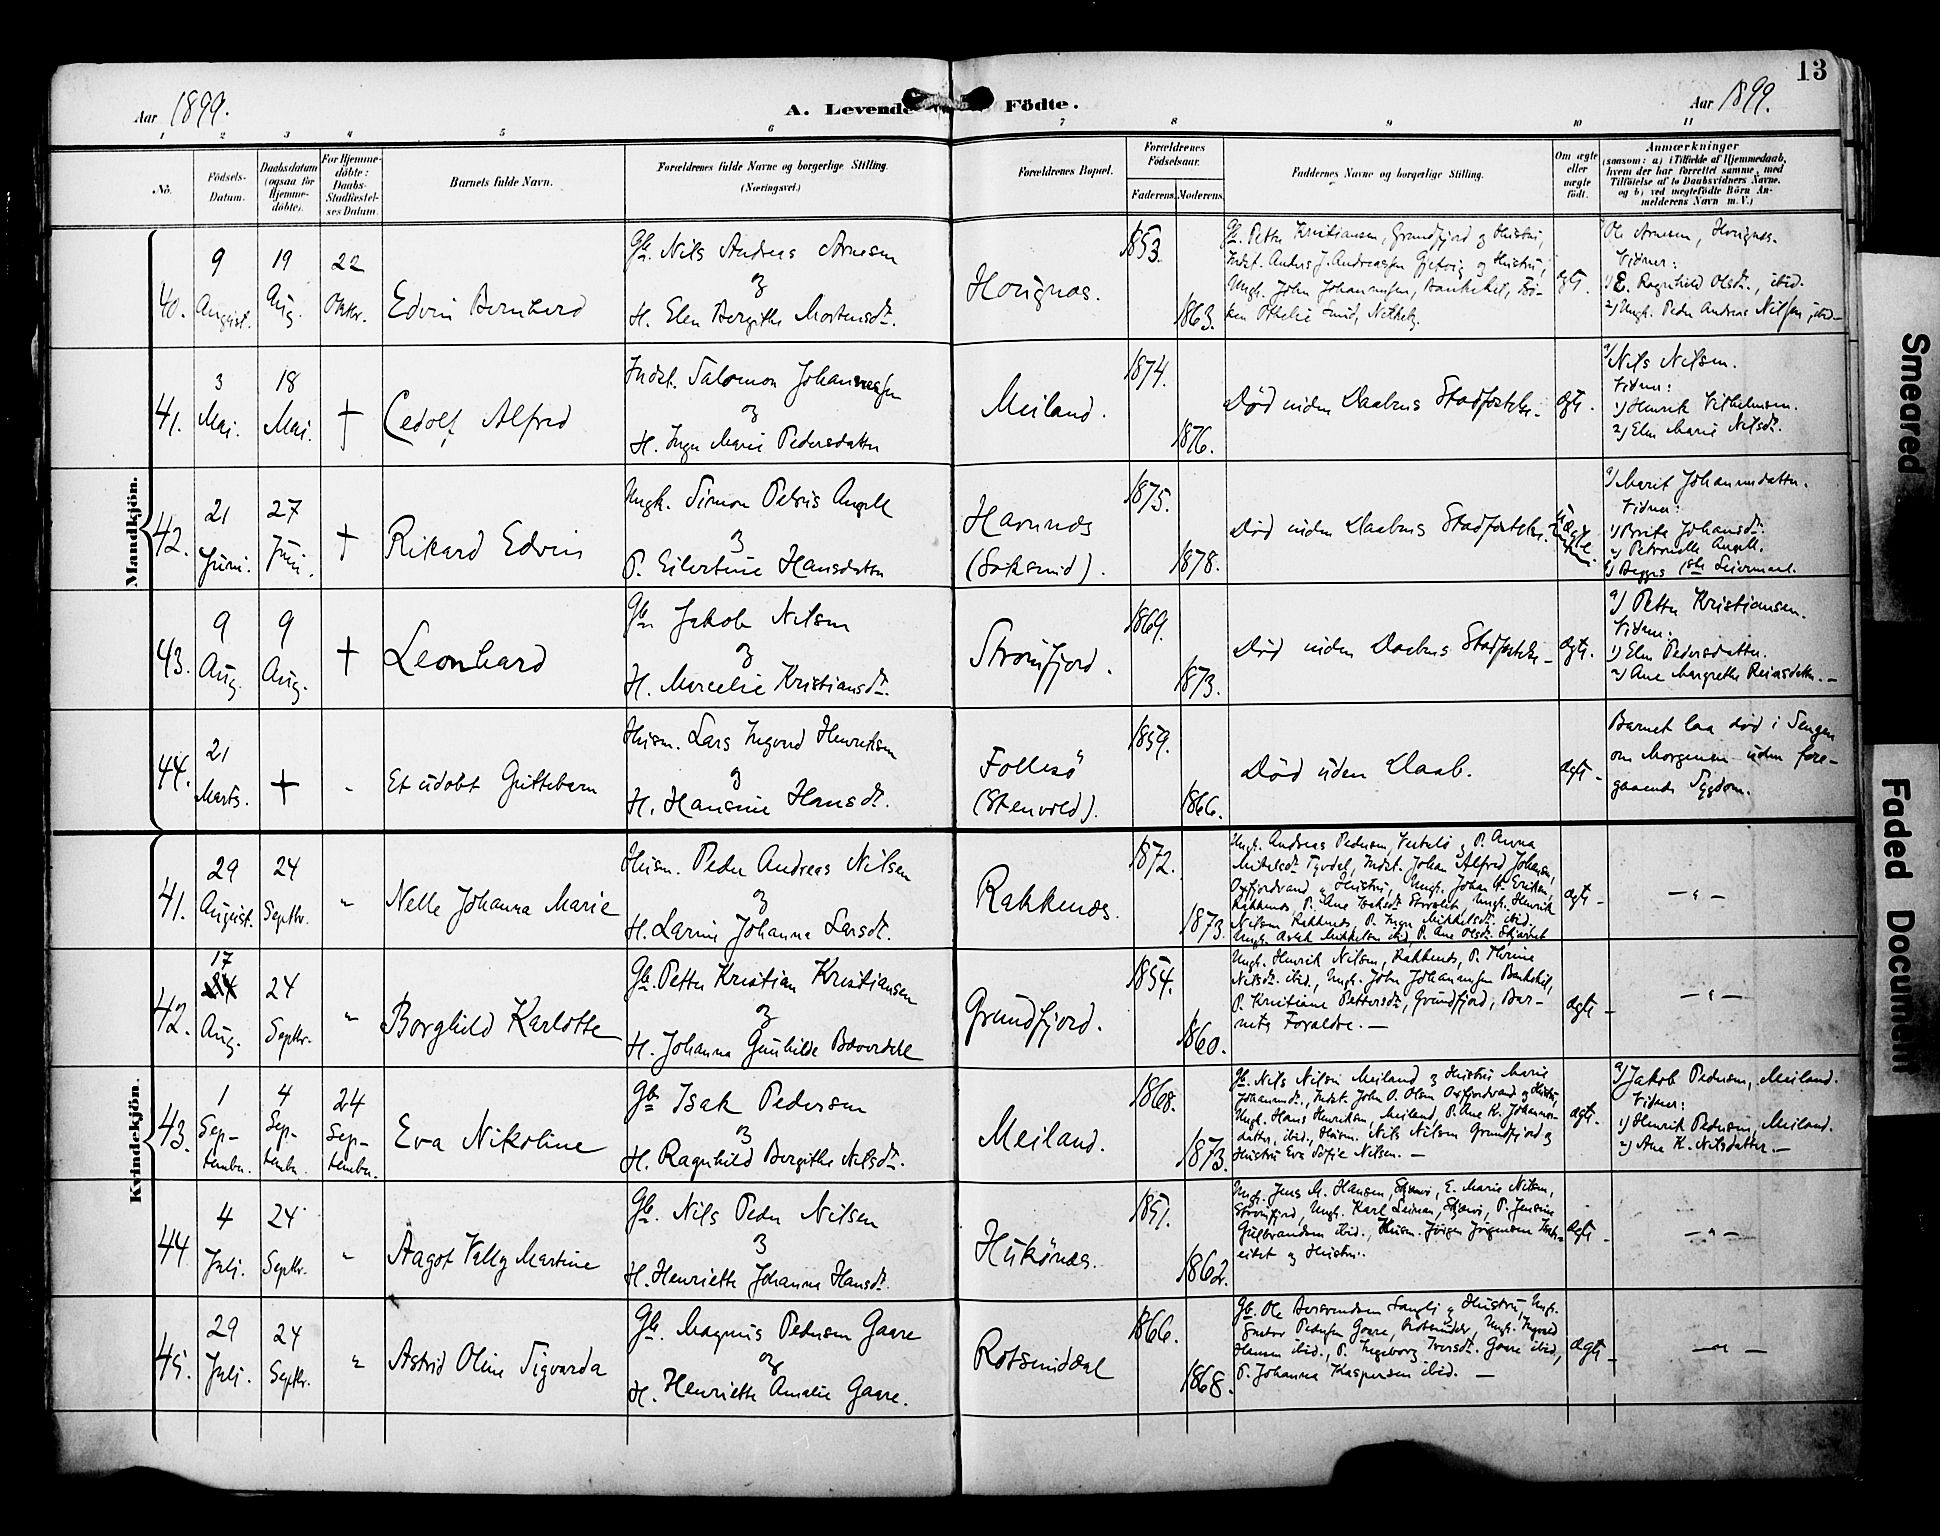 13
Aar 1899. A. Levende Födte. Aar 1899.
1 2 3 4 5 6 7 8 9 10 11
No.
Födsels-
Datum.
Daabsdatum
(ogsaa for
Hjemme-
döbte).
For Hjemme-
döbte:
Daabs-
Stadfæstel-
ses Datum.
Barnets fulde Navn.
Forældrenes fulde Navne og borgerlige Stilling.
(Næringsvei.)
Forældrenes Bopæl.
Forældrenes
Födselsaar.
Faderens. Moderens.
Faddernes Navne og borgerlige Stilling.
Om ægte
eller
uægte
födt.
Anmærkninger
(saasom: a) i Tilfælde af Hjemmedaab,
hvem der har forrettet samme, med
Tilföielse af to Daabsvidners Navne,
og b) ved uægtefödte Börn An-
melderens Navn m. V.)
Mandkjön.
40.
9
August.
19
Aug.
22
Oktbr.
Edvin Bernhard
Gb. Nils Andreas Arnesen
og
H. Elen Bergithe Mortensdt.
1853.
1863.
Gb. Petter Kristiansen, Grundfjord og Hustru,
Indst. Anders J. Andreassen Gjetvig og Hustru,
Ungk. John Johannessen,
ken Othelie
ægte.
Ole Arnesen,
Vidner:
1) E. Ragnhild Olsdt., ibid.
2) Ungk. Peder Andreas Nilssen, ibid.
41.
3
Mai.
18
Mai.
†
Cedolf Alfred
Indst. Salomon Johannessen
og
H. Inger Marie Pedersdatter
Meiland.
1874.
1876.
Död uden Daabens Stadfæstelse.
ægte.
a) Nils Nilsen.
Vidner:
1) Henrik Vilhelmsen.
2) Elen Marie Nilsdt.
42.
21
Juni.
27
Juni.
†
Rikard Edvin
Ungk. Simon Petrus Angell
og
P. Eilertine Hansdatter
Havnnæs
1875.
1878.
Död uden Daabens Stadfæstelse.
uægte
a) Marit Johannesdatter.
Vidner:
1) Brita Johansdt.
2) Petronelle Angell.
43.
9
Aug.
9
Aug.
†
Leonhard
Gb. Jakob Nilsen
og
H. Marcelie Kristiansdt.
Straumfjord.
1869.
1873.
Död uden Daabens Stadfæstelse
ægte.
a) Petter Kristiansen.
Vidner:
1) Elen Pedersdatter.
2) Ane Margrethe
44.
21
Marts.
†
Et udöbt Guttebarn
Husm. Lars Ingvard Henriksen
og
H. Hansine Hansdt.
Follesö
(Stenvold).
1859.
1866.
Död uden Daab.
ægte
Barnet laa död i Sengen
om Morgenen uden fore-
gaaende Sygdom.
Kvindekjön.
41.
29
August.
24
Septbr.
"
Nelle Johanna Marie
Husm. Peder Andreas Nilsen
og
H. Larine Johanna Larsdt.
Rakkenæs.
1872.
1873.
Ungk. Andreas Pedersen, og P. Anna
Indst. Johan Alfred Johansen,
Oxfjordvand og Hustru, Ungk. Johan
Rakkenæs, P. Ane Ungk. Henrik
Nilsen, Rakkenæs, P. Inger Mikkelsdt. ibid.
Ungk. Mikkelsen ibid, P. Ane Olsdt.
ægte
— " —
42.
17
24
Aug.
24
Septbr.
"
Borghild Karlotte
Gb. Petter Kristian Kristiansen
og
H. Johanna Gunhilde
Grundfjord.
1854.
1860.
Ungk. Henrik Nilsen, Rakkenæs, P. Thrine
Nilsdt. ibid., Ungk. John Johannessen
P. Kristiane Pettersdt., Grundfjord, Bar-
nets Forældre. —
ægte
— " —
43.
1
Sep-
tember
4
Sep-
tember
24
Sep-
tember.
Eva Nikoline
Gb. Isak Pedersen
og
H. Ragnhild Bergithe Nilsdt.
Meiland.
1868.
1873.
Gb. Nils Nilsen Meiland og Hustru Marie
Johannesdt., Indst. John O. Olsen Oxfjordvand og Hustru,
Ungk. Hans Henriksen, Meiland, P. Ane K. Johannes-
datter, ibid., Husm. Nils Nilsen Grundfjord og
Hustru Eva Sofie Nilsen. —
ægte.
a) Jakob Pedersen, Meiland.
Vidner:
1) Henrik Pedersen, Meiland.
2) Ane K. Nilsdatter. —
44
4
Juli.
24
Septbr.
"
Aagot Vally Martine
Gb. Nils Peder Nilsen
og
H. Henriette Johanna Hansdt.
Hukönæs.
1851.
1862.
Ungk. Jens M. Hansen, Skjærvö, E. Marie Nilsen,
Straumfjord, Ungk. Karl Leiman, Skjærvö, P. Jensine
Gulbrandsen ibid., Husm. Jörgen Jörgensen
og Hustru.
ægte
— " —
45.
29
Juli.
24
Septbr.
"
Astrid Oline Sigvarda
Gb. Magnus Pedersen Gaare
og
H. Henriette Amalie Gaare.
Rotsunddal
1866.
1868.
Gb. Ole og Hustru, Ungk.
Pedersen Gaare, Ungk. Ingvald
Hansen ibid., P. Ingeborg Iversdt. Gaare ibid.,
P. Johanna Kaspersen ibid. —
ægte
— " —
Smeared
Faded Document